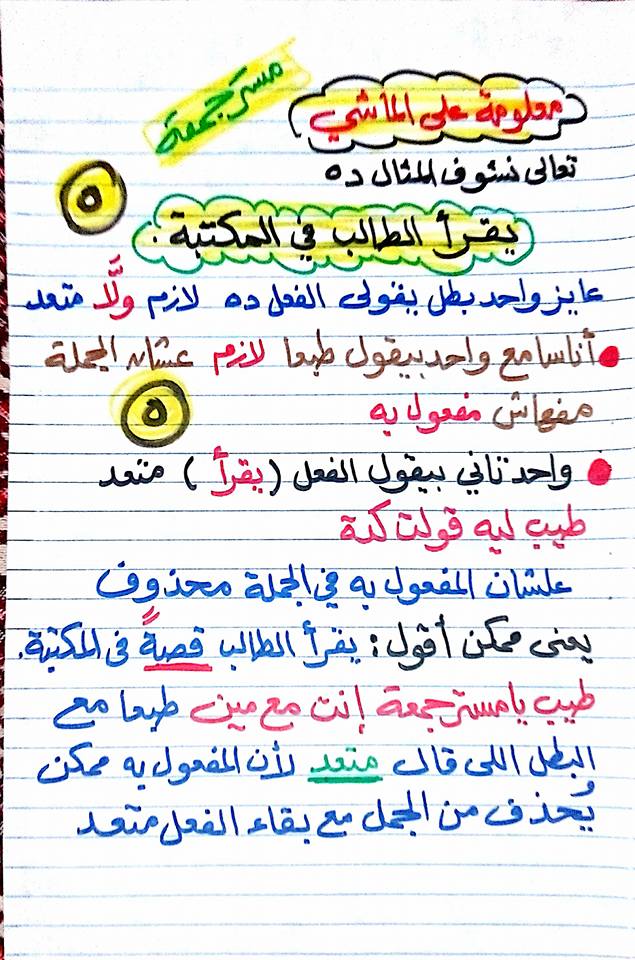 مستر جمعة
معلومة على الماشي
تعالى نشوف المثال ده
٥
يقرأ الطالب في المكتبة.
عايز واحد بطل يقولى الفعل ده لازم ولَّا متعد
أنا سامع واحد بيقول طبعا لازم عشان الجملة
مفهاش مفعول به
٥
واحد تاني بيقول الفعل (يقرأ) متعد
طيب ليه قولت كدة
علشان المفعول به في الجملة محذوف
يعنى ممكن أقول: يقرأ الطالب قصةً فى المكتبة.
طيب يا مستر جمعة إنت مع مين طبعا مع
البطل اللى قال متعد لأن المفعول به ممكن
يُحذف من الجمل مع بقاء الفعل متعد